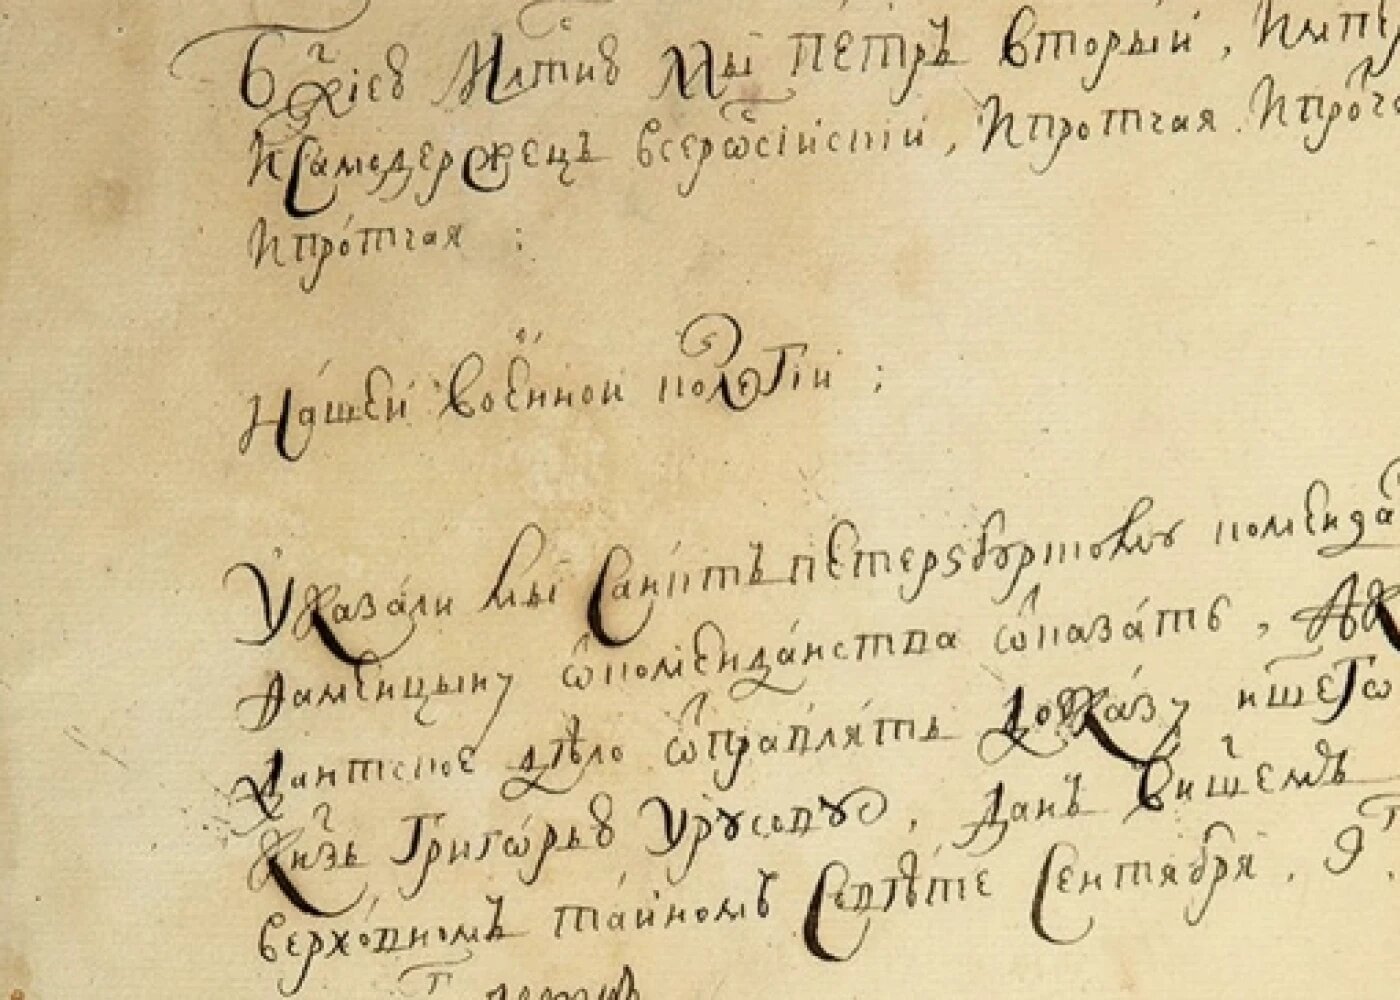 Бжиею Млтию Мы Петръ вторыи, Импе
И Самодержецъ всеросииский, И протчая И проч
И протчая :
Нашеи военной колегии ;
Указали мы Санктъ петерзбургскому коменда
Фаменцыну ѿ комендантства ѿказать ,
дантское дело ѿправлять до указу нашего
Кнзь Григорью Урусову , Данъ в нашемъ
верховномъ таином Совете Сентября . 9 .